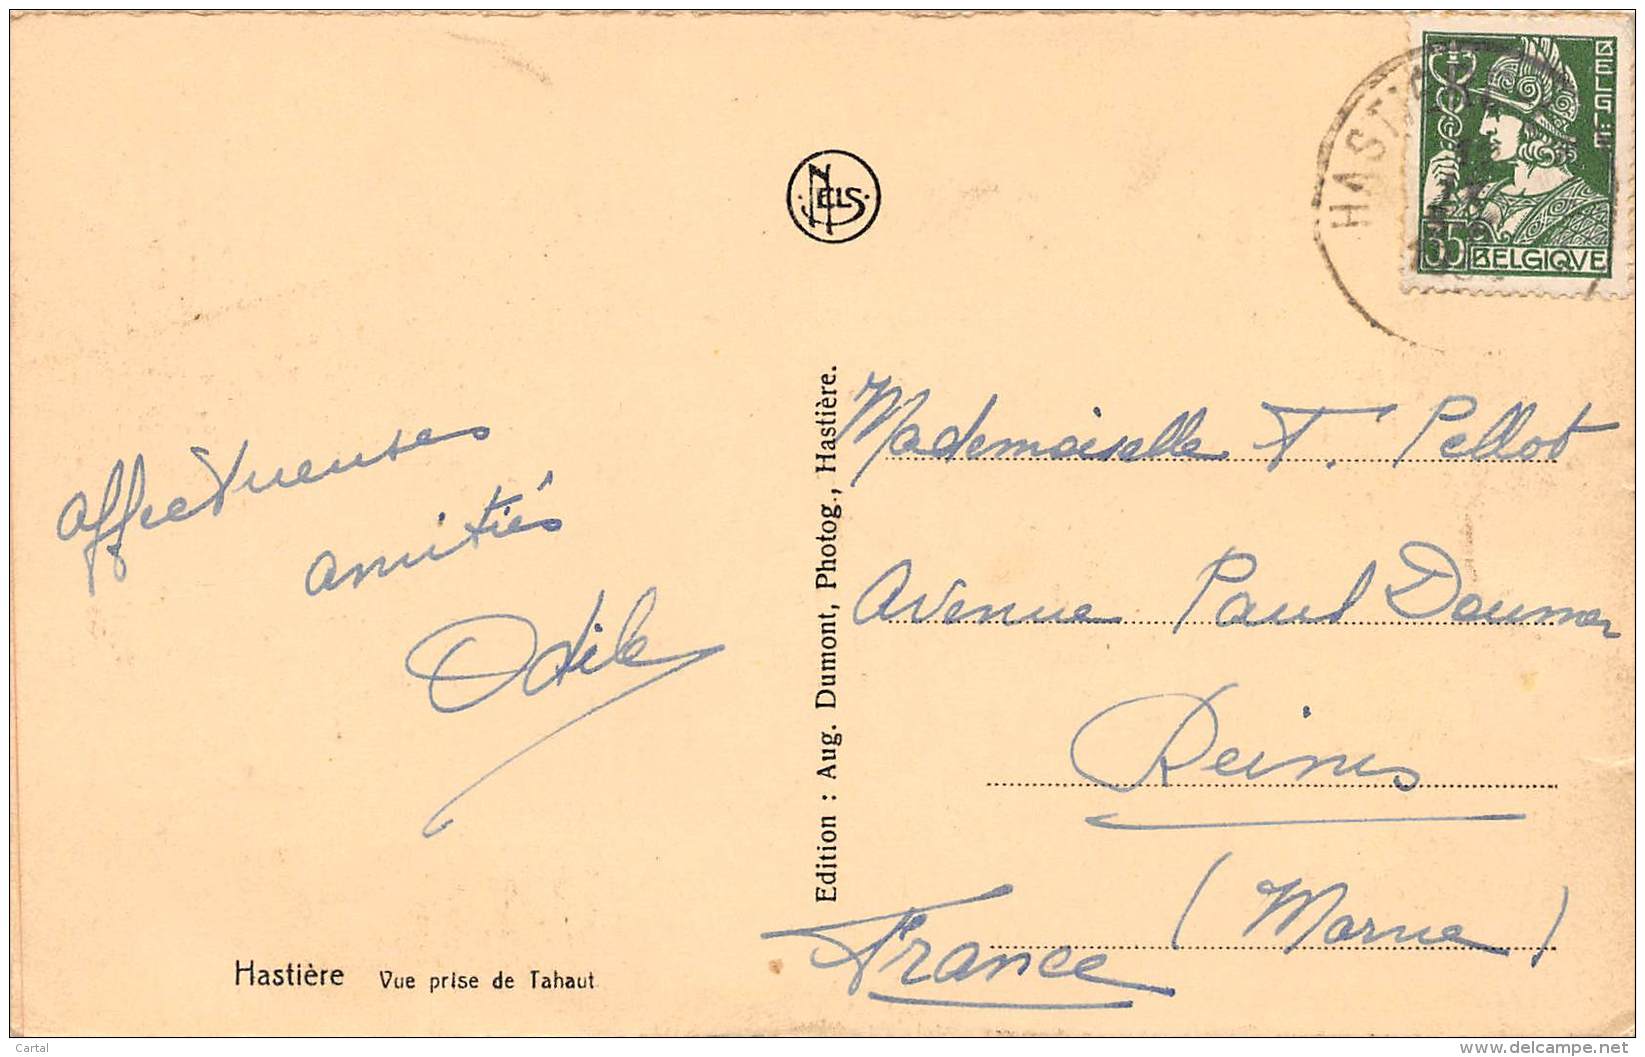 affectueuses
amitiés
Odile
Hastière Vue prise de Tahaut
NELS
Edition : Aug. Dumont, Photog., Hastière.
HASTIÈRE
BELGIË
35 BELGIQVE
Mademoiselle F. Pellot
Avenue Paul Doumer
Reims
(Marne)
France
Cartal
delcampe.net